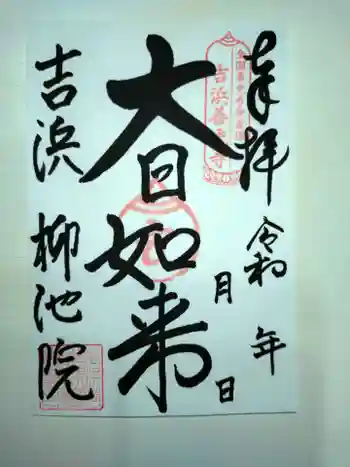 奉拝
令和 年
月 日
大日如来
吉浜 柳池院